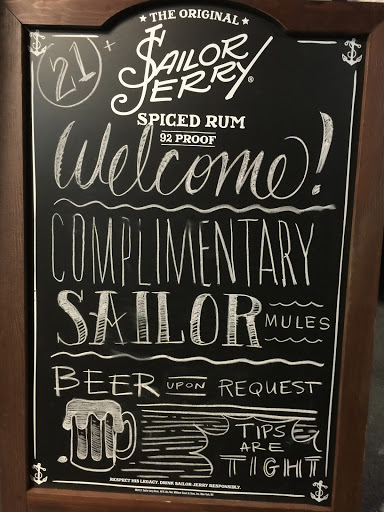 ★ THE ORIGINAL ★
21+
SAILOR
JERRY®
SPICED RUM
92 PROOF
Welcome!
COMPLIMENTARY
SAILOR MULES
BEER UPON REQUEST
TIPS
ARE
TIGHT
RESPECT HIS LEGACY. DRINK SAILOR JERRY RESPONSIBLY.